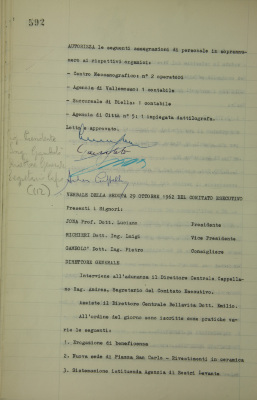 592
AUTORIZZA le seguenti assegnazioni di personale in soprannu-
mero ai rispettivi organici:
- Centro Meccanografico: n° 2 operatori
- Agenzia di Vallemosso: 1 contabile
- Succursale di Biella: 1 contabile
- Agenzia di Città n° 5: 1 impiegata dattilografa.
Letto e approvato.
VERBALE DELLA SEDUTA 29 OTTOBRE 1962 DEL COMITATO ESECUTIVO
Presenti i Signori:
JONA Prof. Dott. Luciano Presidente
Dott. Ing. Luigi Vice Presidente
Dott. Ing. Pietro Consigliere
DIRETTORE GENERALE
Interviene all'adunanza il Direttore Centrale Cappella-
no Rag. Andrea, Segretario del Comitato Esecutivo.
Assiste il Direttore Centrale Dott. Emilio.
All'ordine del giorno sono iscritte sono pratiche va-
rie le seguenti:
1. Erogazione di beneficenza
2. Nuova sede di Piazza San Carlo - Rivestimenti in ceramica
3. Sistemazione istituenda Agenzia di Sestri Levante